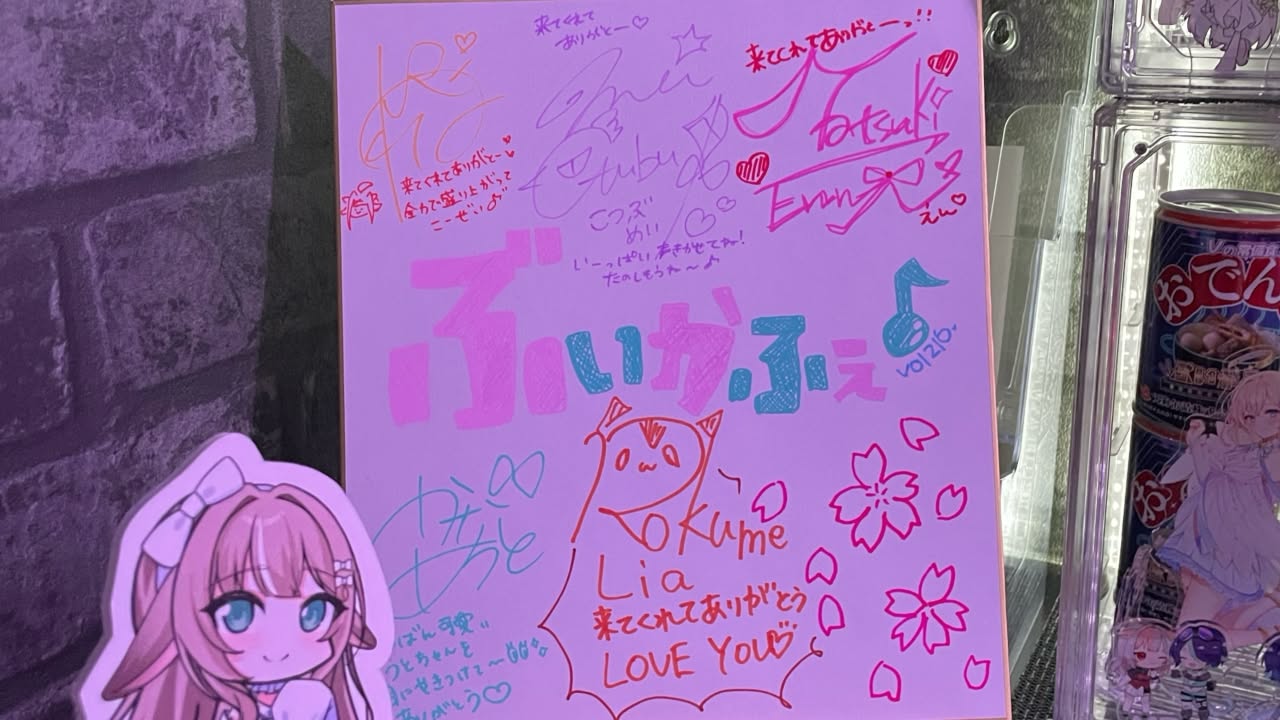 来てくれて
ありがとー♡
来てくれてありがとーっ!!
Natsuki
Enn
えん♡
来てくれてありがとー♡
全力で盛り上がって
こーぜい♪
Mei
Cotubu
こつぶ
めい
いーっぱい声きかせてネ!
たのしもうね〜♪
ぶいかふぇ♪
vol216.
Okume
Lia
来てくれてありがとう
LOVE YOU♡
ばん可愛い
ちゃんを
きつけて〜
ありがとう♡
Vの常備食
おでん